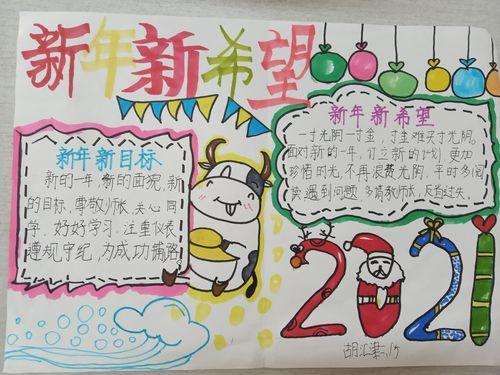 新年新希望
新年新目标
新的一年,新的面貌,新
的目标、尊敬师长、关心同
学、好好学习、注重仪表
遵规守纪,为成功铺路
新年新希望
一寸光阴一寸金,寸金难买寸光阴。
面对新的一年,订立新的计划,更加
珍惜时光,不再浪费光阴,平时多阅
读,遇到问题,多请教师长,反省过失。
2021